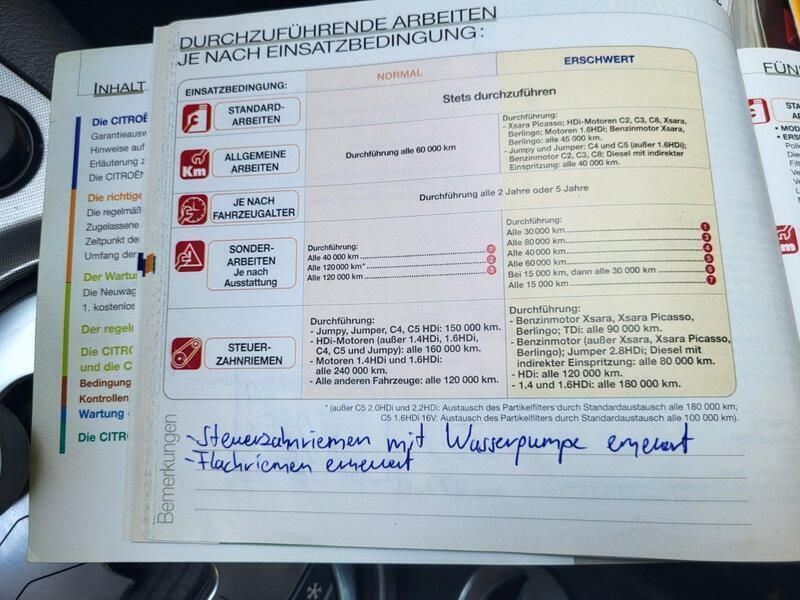 DURCHZUFÜHRENDE ARBEITEN
JE NACH EINSATZBEDINGUNG:
EINSATZBEDINGUNG:
NORMAL
ERSCHWERT
STANDARD-
ARBEITEN
Stets durchzuführen
Km
ALLGEMEINE
ARBEITEN
Durchführung alle 60 000 km
Durchführung:
- Xsara Picasso; HDi-Motoren C2, C3, C8, Xsara,
Berlingo; Motoren 1.6HDi; Benzinmotor Xsara,
Berlingo: alle 45 000 km.
- Jumpy und Jumper: C4 und C5 (außer 1.6HDi);
Benzinmotor C2, C3, C8; Diesel mit indirekter
Einspritzung: alle 40 000 km.
JE NACH
FAHRZEUGALTER
Durchführung alle 2 Jahre oder 5 Jahre
SONDER-
ARBEITEN
Je nach
Ausstattung
Durchführung:
Alle 40 000 km 1
Alle 120 000 km* 2
Alle 120 000 km 3
Durchführung:
Alle 30 000 km 1
Alle 80 000 km 3
Alle 40 000 km 4
Alle 60 000 km 5
Bei 15 000 km, dann alle 30 000 km 6
Alle 15 000 km 7
STEUER-
ZAHNRIEMEN
Durchführung:
- Jumpy, Jumper, C4, C5 HDi: 150 000 km.
- HDi-Motoren (außer 1.4HDi, 1.6HDi,
C4, C5 und Jumpy): alle 160 000 km.
- Motoren 1.4HDi und 1.6HDi:
alle 240 000 km.
- Alle anderen Fahrzeuge: alle 120 000 km.
Durchführung:
- Benzinmotor Xsara, Xsara Picasso,
Berlingo; TDi: alle 90 000 km.
- Benzinmotor (außer Xsara, Xsara Picasso,
Berlingo); Jumper 2.8HDi; Diesel mit
indirekter Einspritzung: alle 80 000 km.
- HDi: alle 120 000 km.
- 1.4 und 1.6HDi: alle 180 000 km.
* (außer C5 2.0HDi und 2.2HDi: Austausch des Partikelfilters durch Standardaustausch alle 180 000 km;
C5 1.6HDi 16V: Austausch des Partikelfilters durch Standardaustausch alle 100 000 km).
Bemerkungen
- Steuerzahnriemen mit Wasserpumpe erneuert
- Flachriemen erneuert
INHALT
Die CITROË
Garantieausw
Hinweise auf
Erläuterung z
Die CITROËN
Die richtige
Die regelmäß
Zugelassene
Zeitpunkt der
Umfang der
Der Wartu
Die Neuwag
1. kostenlos
Der regel
Die CITRO
und die C
Bedingung
Kontrollen
Wartung
Die CITR
FÜN
STA
AR
• MOD
• ERS